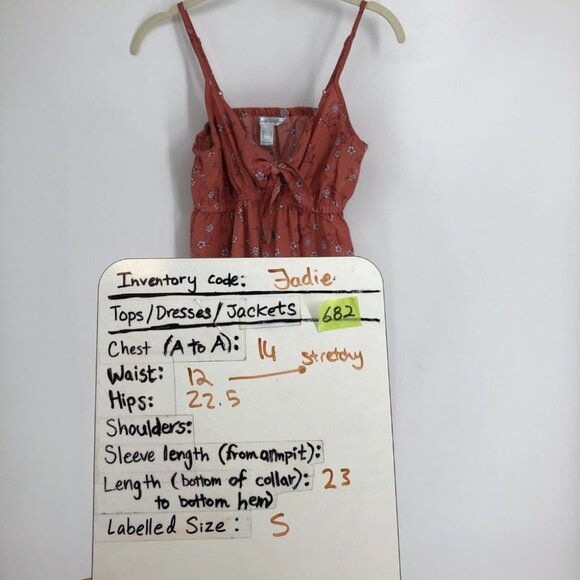 Inventory code: Jadie
Tops/Dresses/Jackets 682
Chest (A to A): 14
Waist: 12 stretchy
Hips: 22.5
Shoulders:
Sleeve length (from armpit):
Length (bottom of collar): 23
to bottom hem)
Labelled Size: S